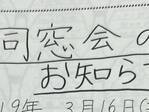 同窓会の
お知らせ
19年 3月16日(